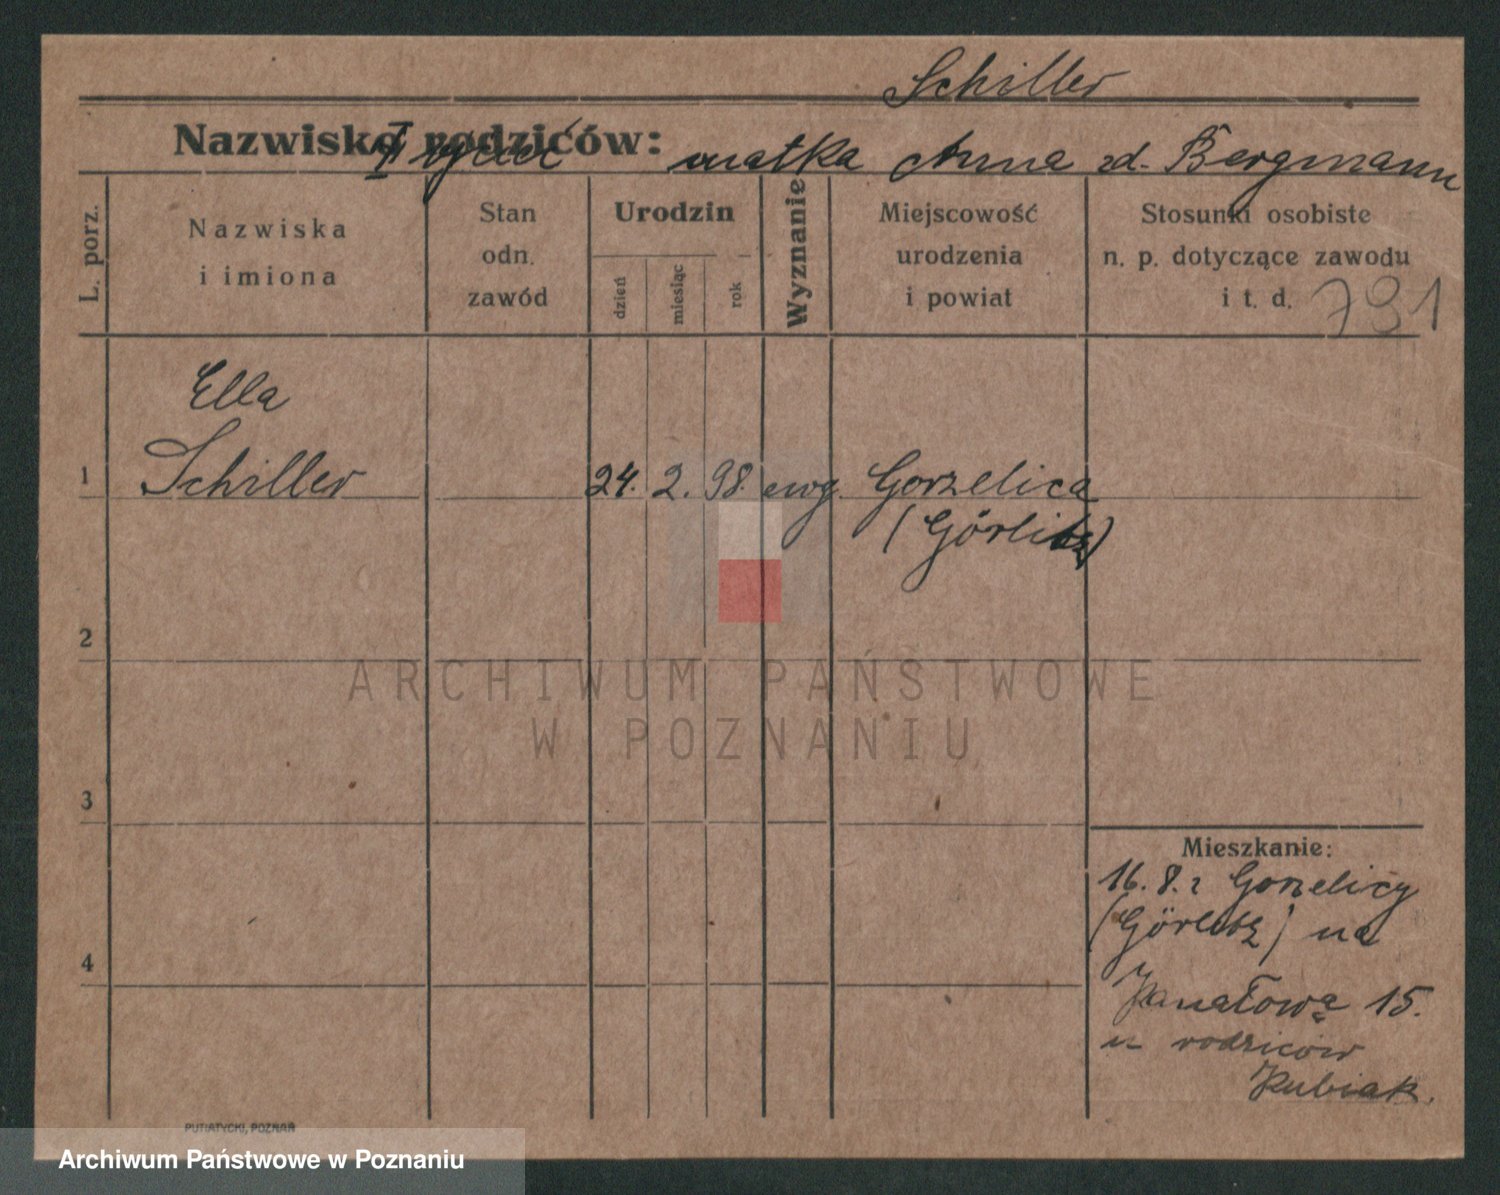 Schiller
Nazwisko rodziców: matka Anna zd. Bergmann
L. porz.
Nazwiska
i imiona
Stan
odn.
zawód
Urodzin
dzień
miesiąc
rok
Wyznanie
Miejscowość
urodzenia
i powiat
Stosunki osobiste
n. p. dotyczące zawodu
i t. d. 791
Ella
1 Schiller 24. 2. 98. ewg. Gorzelica
(Görlitz)
2
ARCHIWUM PAŃSTWOWE
W POZNANIU
3
Mieszkanie:
16. 8. z Gorzelicy
(Görlitz) na
4
Kanałową 15.
u rodziców
Kubiak.
PUTIATYCKI, POZNAŃ
Archiwum Państwowe w Poznaniu